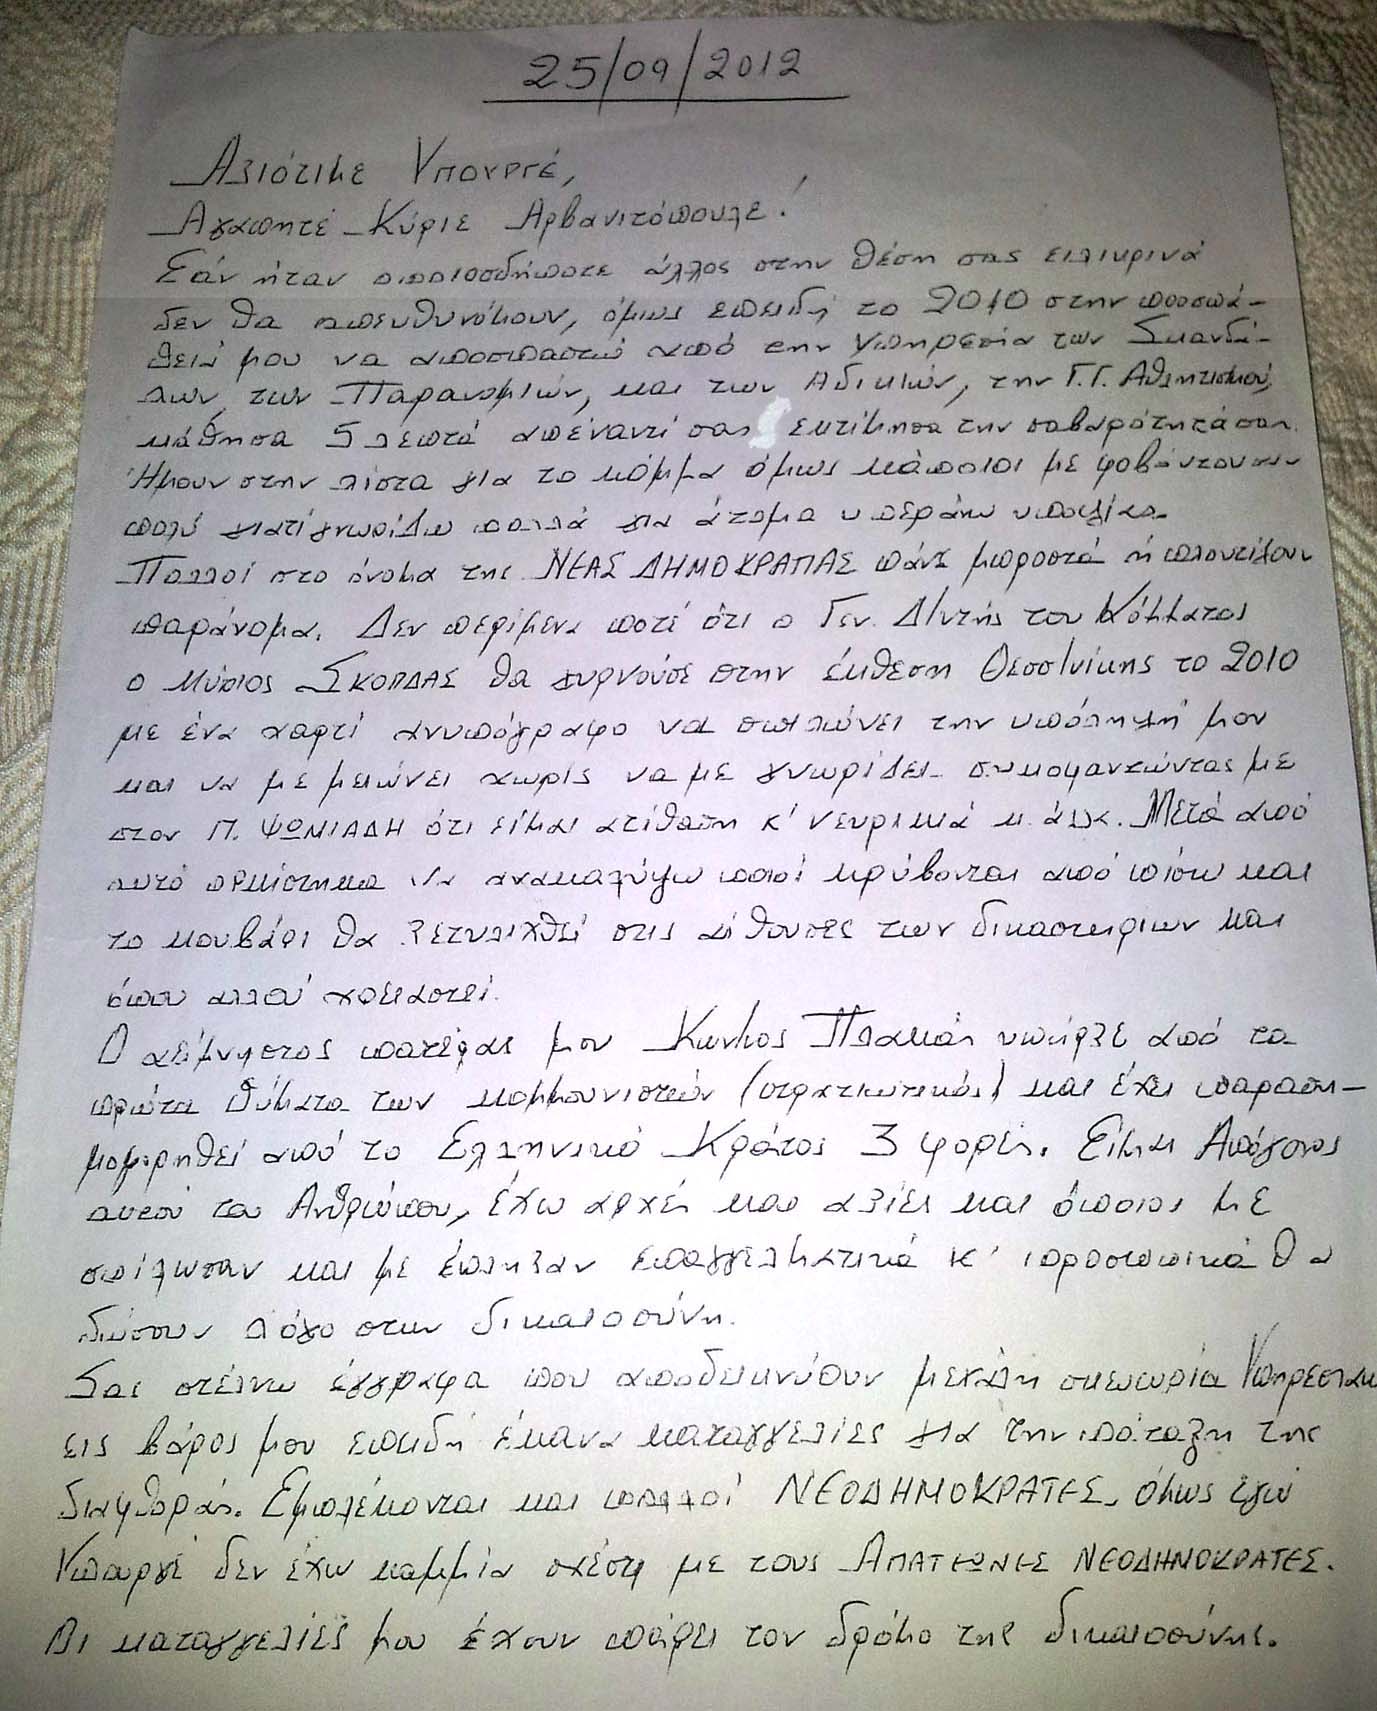 25/09/2012
Αξιότιμε Υπουργέ,
Αγαπητέ Κύριε Αρβανιτόπουλε!
Εάν ήταν οποιοσδήποτε άλλος στην θέση σας ειλικρινά
δεν θα απευθυνόμουν, όμως επειδή το 2010 στην προσπά-
θειά μου να αποσπαστώ από την Υπηρεσία των Σκανδά-
λων, των Παρανομιών, και των Αδικιών, την Γ.Γ. Αθλητισμού,
κάθησα 5 λεπτά απέναντί σας εκτίμησα την σοβαρότητά σας.
Ήμουν στην λίστα για το κόμμα όμως κάποιοι με φοβόντουσαν
πολύ γιατί γνωρίζω πολλά για άτομα υπεράνω υποψίας.
Πολλοί στο όνομα της ΝΕΑΣ ΔΗΜΟΚΡΑΤΙΑΣ πάνε μπροστά ή πλουτίζουν
παράνομα. Δεν περίμενα ποτέ ότι ο Γεν. Δ/ντής του Κόμματος
ο κύριος ΣΚΟΡΔΑΣ θα γυρνούσε στην έκθεση Θεσσ/νίκης το 2010
με ένα χαρτί ανυπόγραφο να σπιλώνει την υπόληψή μου
και να με μειώνει χωρίς να με γνωρίζει συκοφαντώντας με
στον Π. ΨΩΜΙΑΔΗ ότι είμαι ατίθαση κ' νευρικιά κ. άλλα. Μετά από
αυτό ορκίστηκα να ανακαλύψω ποιοί κρύβονται από πίσω και
το κουβάρι θα ξετυλιχθεί στις αίθουσες των δικαστηρίων και
όπου αλλού χρειαστεί.
Ο αείμνηστος πατέρας μου Κων/νος Πλακάς υπήρξε από τα
πρώτα θύματα των κομμουνιστών (στρατιωτικός) και έχει παραση-
μοφορηθεί από το Ελληνικό Κράτος 3 φορές. Είμαι Απόγονος
αυτού του Ανθρώπου, έχω αρχές και αξίες και όποιοι με
σπίλωσαν και με έπληξαν επαγγελματικά κ' προσωπικά θα
δώσουν λόγο στην δικαιοσύνη.
Σας στέλνω έγγραφα που αποδεικνύουν μεγάλη σκευωρία Υπηρεσιακή
εις βάρος μου επειδή έκανα καταγγελίες για την πάταξη της
διαφθοράς. Εμπλέκονται και πολλοί ΝΕΟΔΗΜΟΚΡΑΤΕΣ, όμως εγώ
Υπουργέ δεν έχω καμμία σχέση με τους ΑΠΑΤΕΩΝΕΣ ΝΕΟΔΗΜΟΚΡΑΤΕΣ.
Οι καταγγελίες μου έχουν πάρει τον δρόμο της δικαιοσύνης.